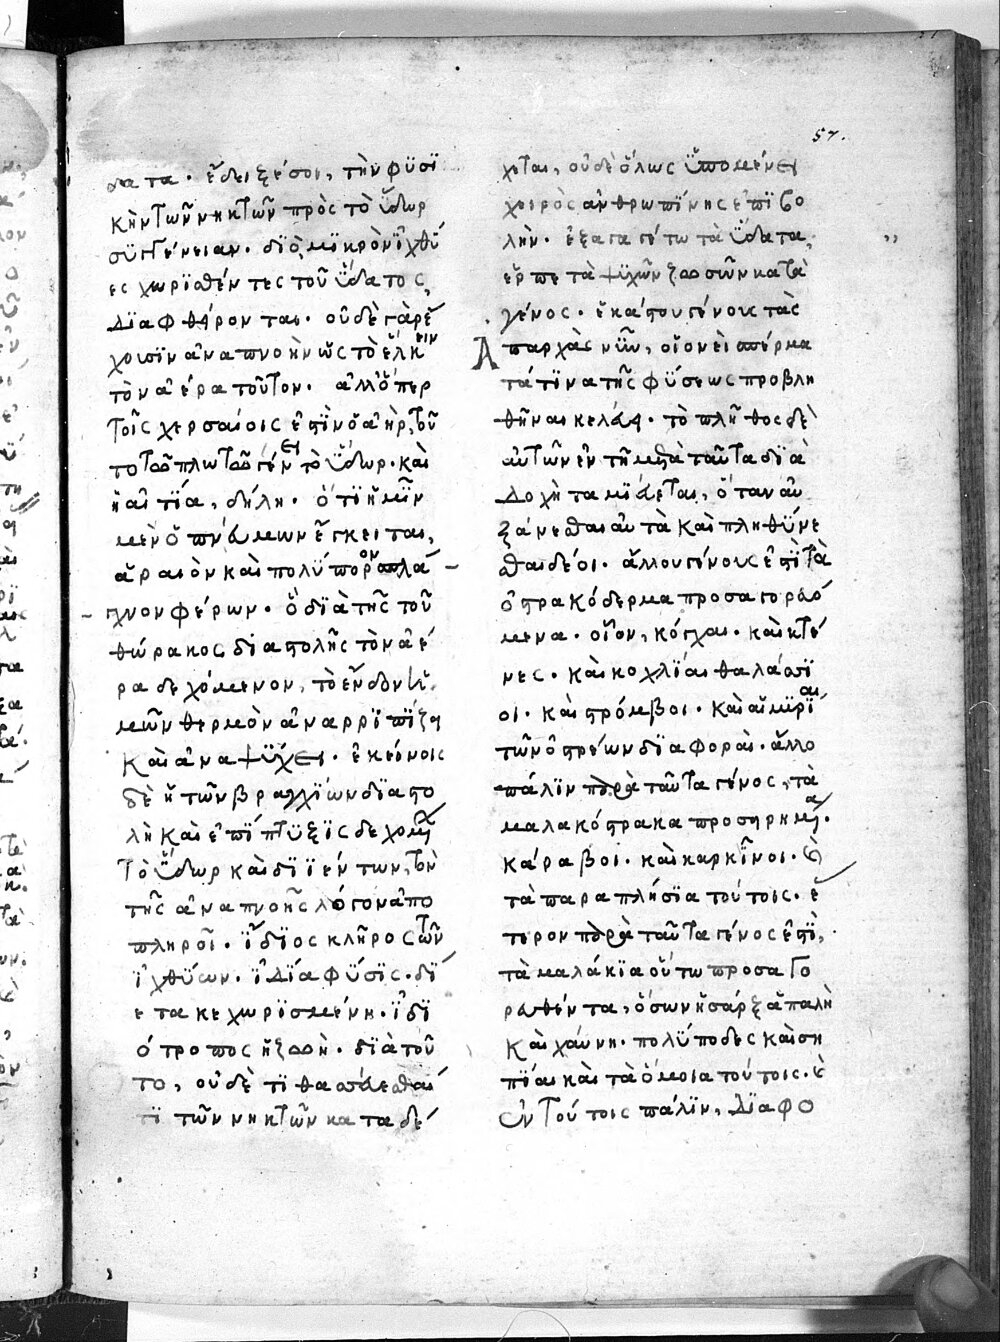 57.
δατα. ἔδειξέ σοι, τὴν φϋσϊ
κὴν τῶν νηκτῶν πρὸς τὸ ὕδωρ
συγγένειαν. δϊὸ, μϊκρὸν ἰχθύ
ες χωρϊσθέντες τοῦ ὕδατος,
διαφθείρονται. οὐδὲ γὰρ ἔ
χουσϊν ἀναπνοὴν ὥς τὸ ἕλκειν
τὸν ἀέρα τοῦτον. ἀλλ' ὅπερ
τοῖς χερσαίοις ἐστὶν ὁ ἀὴρ, τοῦ
το τῶ πλωτῶ γένει τὸ ὕδωρ. καὶ
ἡ αἰτϊα, δήλη. ὅτϊ ἡμῖν
μὲν ὁ πνεύμων ἔγκειται,
ἀραιὸν καὶ πολύπορον σπλά
γχνον φέρων. ὃ δϊὰ τῆς τοῦ
θώρακος διαστολῆς τὸν ἀέ
ρα δεχόμενον, τὸ ἔνδον ἡ
μῶν θερμὸν ἀναρρϊπίζει
καὶ ἀναψύχει. ἐκείνοις
δὲ ἡ τῶν βραγχϊων διαστο
λὴ καὶ ἐπίπτυξϊς δεχομένων
τὸ ὕδωρ καὶ δϊϊέντων, τὸν
τῆς ἀναπνοῆς λόγον ἀπο
πληροῖ. ἴδϊος κλῆρος τῶν
ἰχθύων. ἰδία φύσϊς. δϊ
ετα κεχωρϊσμένη. ἰδϊ
ότροπος ἡ ζωὴ. δϊὰ τοῦ
το, οὐδὲ τϊθασεύεσθαί
τϊ τῶν νηκτῶν καταδέ
χεται, οὐδὲ ὅλως ὑπομένει
χειρὸς ἀνθρωπίνης ἐπϊβο
λήν. ἐξαγαγέτω τὰ ὕδατα,
ἑρπετὰ ψυχῶν ζωσῶν κατὰ
γένος. ἑκάστου γένους τὰς
ἀπαρχὰς νῦν, οἱονεὶ σπέρμα
τά τϊνα τῆς φύσεως προβλη
θῆναι κελεύει. τὸ πλῆθος δὲ
αὐτῶν ἐν τῆ μετὰ ταῦτα δϊα
δοχῆ ταμϊεύεται, ὅταν αὐ
ξάνεσθαι αὐτὰ καὶ πληθύνε
σθαι δέοι. ἄλλου γένους ἐστὶ τὰ
ὀστρακόδερμα προσαγορευό
μενα. οἷον, κόγχαι. καὶ κτέ
νες. καὶ κοχλίαι θαλάσσϊ
οι. καὶ στρόμβοι. καὶ αἱ μυρίαι
τῶν ὀστρέων δϊαφοραὶ. ἄλλο
πάλϊν παρὰ ταῦτα γένος, τὰ
μαλακόστρακα προσηρημένα.
κάραβοι. καὶ καρκῖνοι. καὶ
τὰ παραπλήσϊα τούτοις. ἕ
τερον παρὰ ταῦτα γένος ἐστὶ,
τὰ μαλάκϊα οὕτω προσαγο
ρευθέντα, ὅσων ἡ σάρξ ἁπαλὴ
καὶ χαύνη. πολύποδες καὶ ση
πίαι καὶ τὰ ὅμοια τούτοις. καὶ
ἐν τούτοις πάλϊν, διαφο